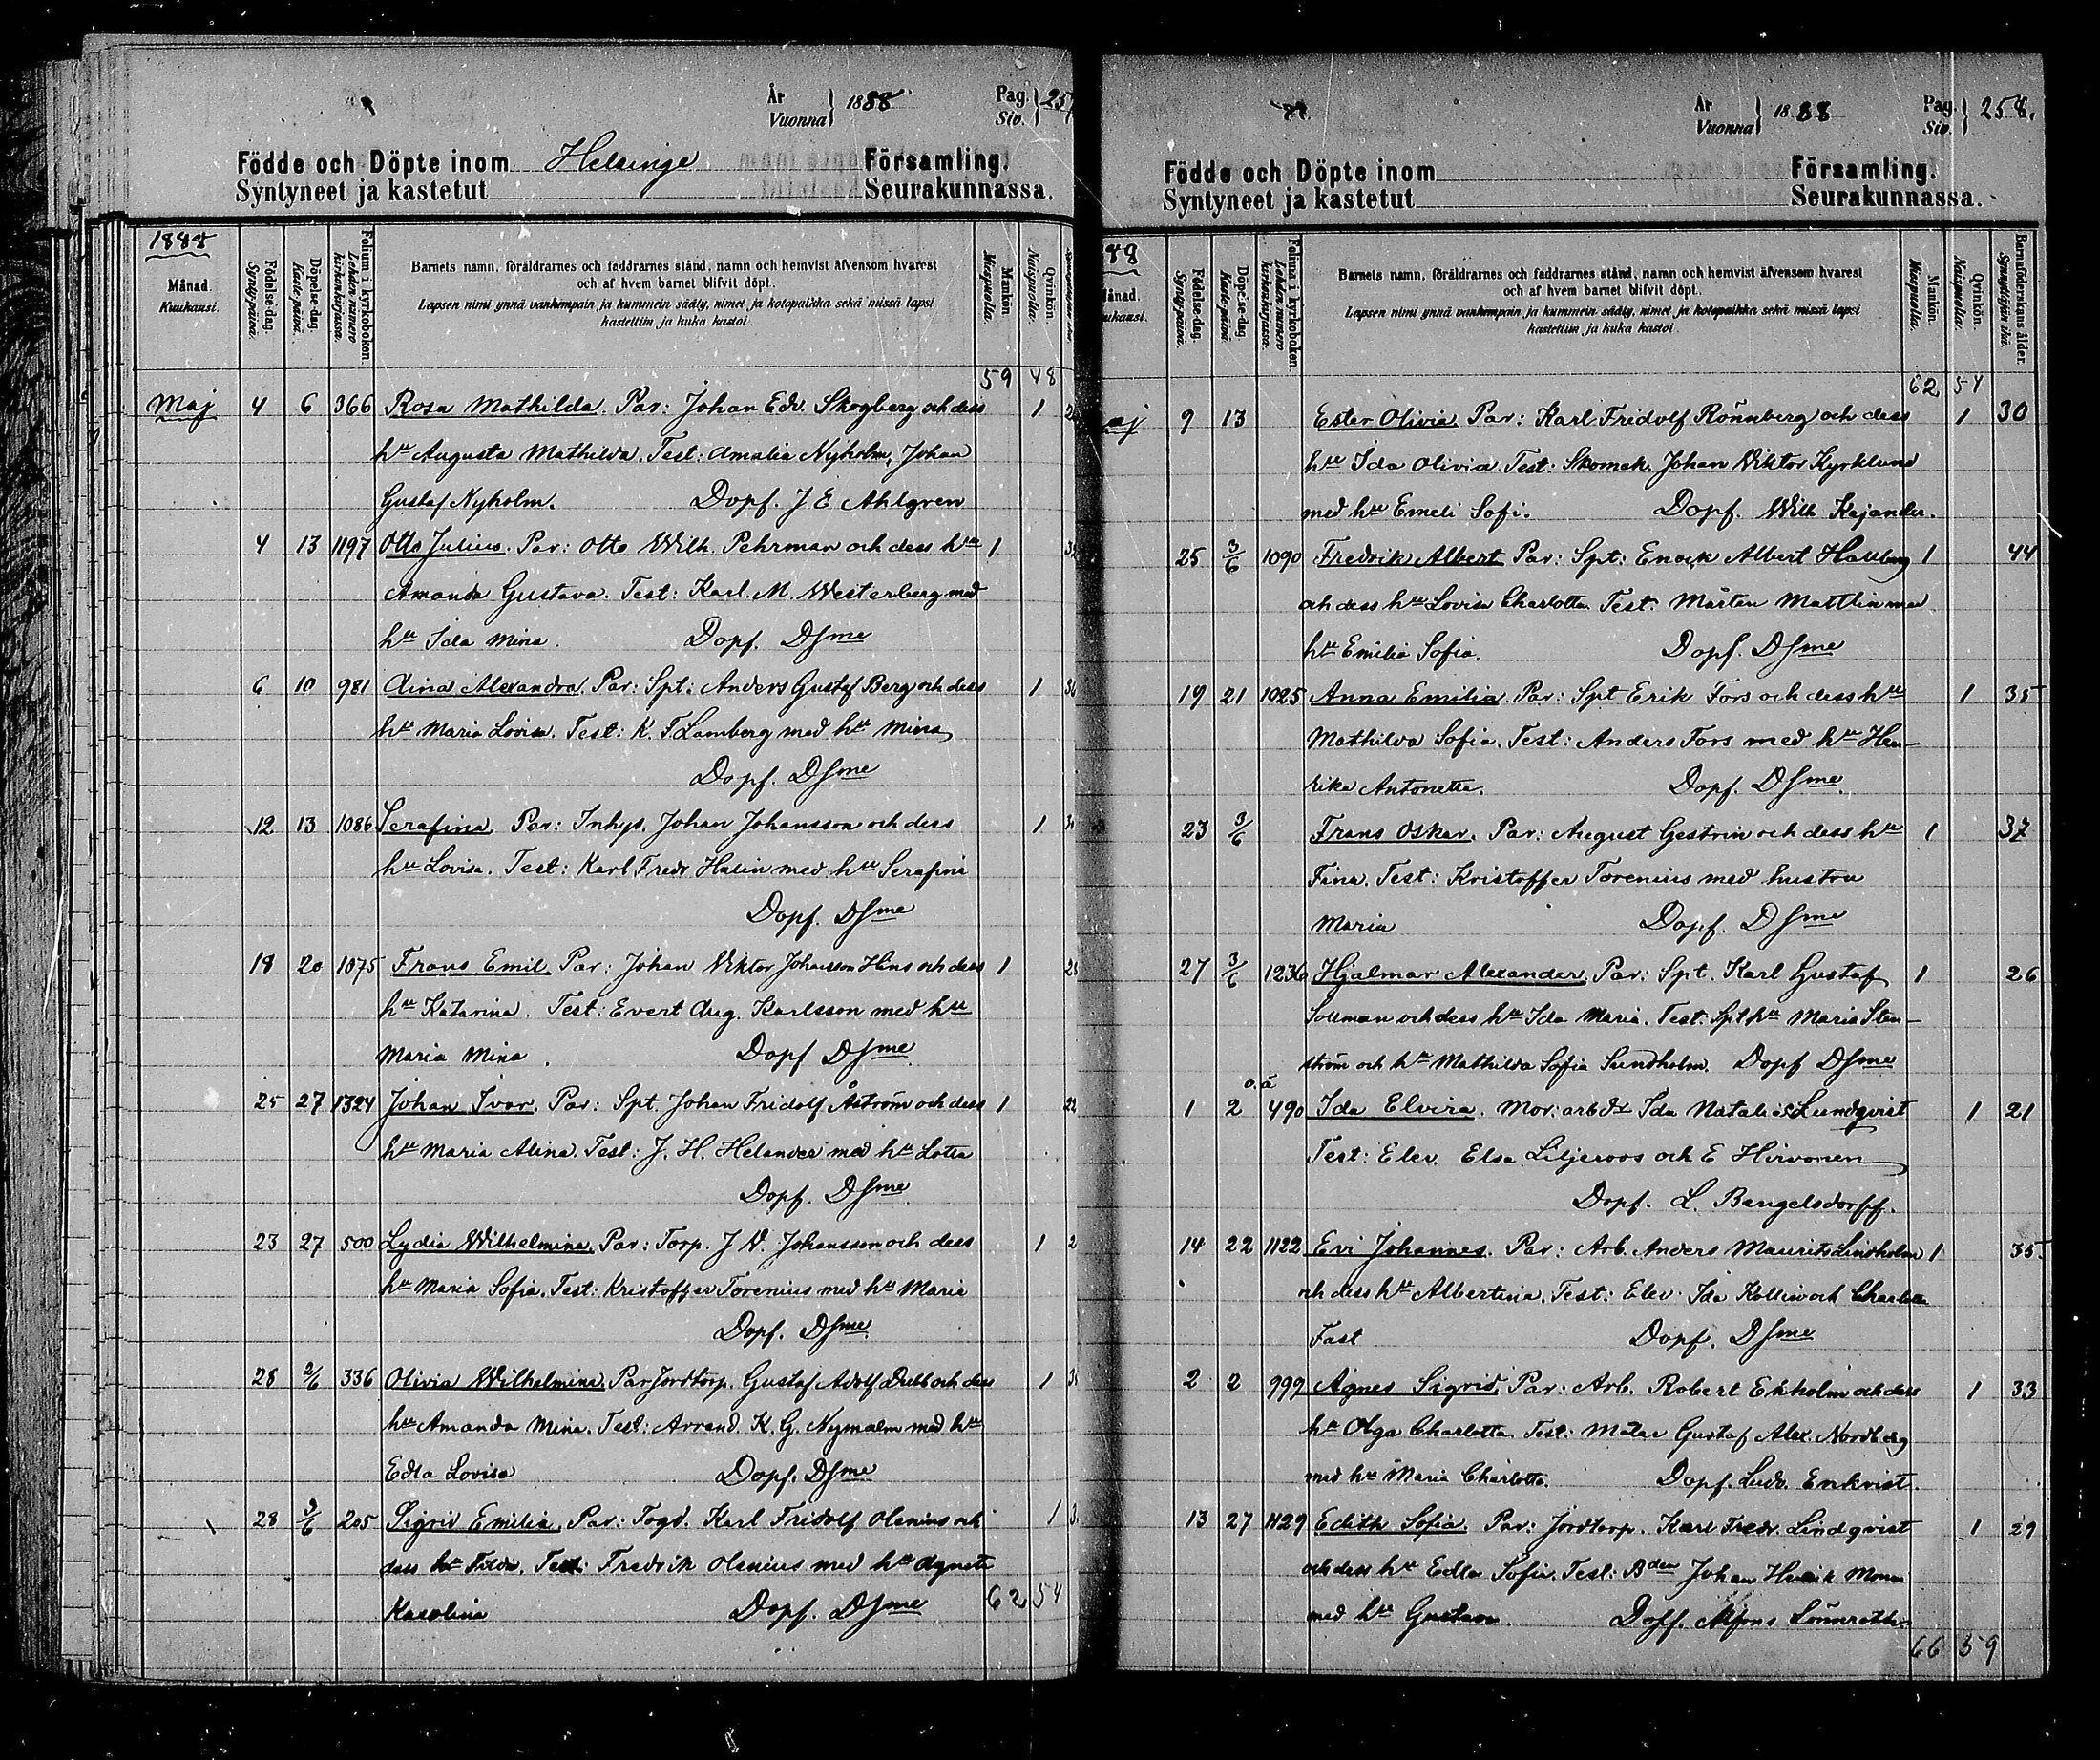 År
Vuonna } 1888 Pag.
Siv. } 257
Födde och Döpte inom Helsinge Församling.
Syntyneet ja kastetut Seurakunnassa.
1888
Månad.
Kuukausi.
Födelse-dag.
Syntypäivä.
Döpelse-dag.
Kastepäivä.
Folium i kyrkoboken.
Lehden numero kirkonkirjassa.
Barnets namn, föräldrarnes och faddrarnes stånd, namn och hemvist äfvensom hvarest
och af hvem barnet blifvit döpt.
Lapsen nimi ynnä vanhempain ja kummein sääty, nimet ja kotopaikka sekä missä lapsi
kastettiin ja kuka kastoi.
Mankön.
Miespuolia.
Qvinkön.
Naispuolia.
59 48
Maj 4 6 366 Rosa Mathilda. Par: Johan Edv. Skogberg och dess 1
hu Augusta Mathilda. Test: Amalia Nyholm, Johan
Gustaf Nyholm. Dopf. J E Ahlgren
4 13 1197 Otto Julius. Par: Otto Wilh. Pehrman och dess hu 1
Amanda Gustava. Test: Karl. M. Westerberg med
hu Ida Mina. Dopf. DSme
6 10 981 Aina Alexandra. Par: Spt: Anders Gustaf Berg och dess 1
hu Maria Lovisa. Test: K. F. Lamberg med hu Mina
Dopf. DSme
12 13 1086 Serafina. Par: Inhys. Johan Johansson och dess 1
hu Lovisa. Test: Karl Fredr Halin med hu Serafina
Dopf. DSme
18 20 1075 Frans Emil. Par: Johan Viktor Johansson Hins och dess 1
hu Katarina. Test: Evert Aug. Karlsson med hu
Maria Mina. Dopf DSme
25 27 1324 Johan Ivar. Par: Spt. Johan Fridolf Åström och dess 1 22
hu Maria Alina. Test: J. H. Helander med hu Lotta
Dopf. DSme
23 27 500 Lydia Wilhelmina. Par: Torp. J V. Johansson och dess 1
hu Maria Sofia. Test: Kristoffer Torenius med hu Maria
Dopf. DSme
28 2/6 336 Olivia Wilhelmina. Par Jordtorp. Gustaf Adolf Dubb och dess 1
hu Amanda Mina. Test: Arrend. K. G. Nymalm med hu
Edla Lovisa Dopf. DSme
28 3/6 205 Sigrid Emilia. Par: Fogd. Karl Fridolf Olenius och 1
dess hu Tilda. Test: Fredrik Olenius med hu Agneta
Karolina Dopf. DSme 62 54
År
Vuonna } 1888 Pag.
Siv. } 258.
Födde och Döpte inom Församling.
Syntyneet ja kastetut Seurakunnassa.
Födelse-dag.
Syntypäivä.
Döpelse-dag.
Kastepäivä.
Folium i kyrkoboken.
Lehden numero kirkonkirjassa.
Barnets namn, föräldrarnes och faddrarnes stånd, namn och hemvist äfvensom hvarest
och af hvem barnet blifvit döpt.
Lapsen nimi ynnä vanhempain ja kummein sääty, nimet ja kotopaikka sekä missä lapsi
kastettiin ja kuka kastoi.
Mankön.
Miespuolia.
Qvinkön.
Naispuolia.
Barnaföderskans ålder.
Synnyttäjän ikä.
62 54
9 13 Ester Olivia. Par: Karl Fridolf Rönnberg och dess 1 30
hu Ida Olivia. Test: Skomak. Johan Viktor Kyrklund
med hu Emeli Sofi. Dopf. Wilh Kajander.
25 3/6 1090 Fredrik Albert Par: Spt: Enock Albert Hallberg 1 44
och dess hu Lovisa Charlotta. Test. Mårten Mattlin med
hu Emilia Sofia. Dopf. DSme
19 21 1025 Anna Emilia. Par: Spt Erik Fors och dess hu 1 35
Mathilda Sofia. Test: Anders Fors med hu Hen-
rika Antonetta. Dopf. DSme.
23 3/6 Frans Oskar. Par: August Gestrin och dess hu 1 37
Fina. Test: Kristoffer Torenius med hustru
Maria Dopf. DSme
27 3/6 1236 Hjalmar Alexander. Par: Spt. Karl Gustaf 1 26
Sollman och dess hu Ida Maria. Test: Spt hu Maria Sten-
ström och hu Mathilda Sofia Sundholm. Dopf DSme
o. ä
1 2 490 Ida Elvira. Mor: arb Ida Natalia Lundqvist 1 21
Test: Elev. Elsa Liljeroos och E Hirvonen
Dopf. L. Bengelsdorff.
14 22 1122 Evi Johannes. Par: Arb. Anders Maurits Lindholm 1 35
och dess hu Albertina. Test: Elev. Ida Kollin och Charlotta
Fast Dopf. DSme
2 2 999 Agnes Sigrid. Par: Arb. Robert Ekholm och dess 1 33
hu Olga Charlotta. Test: Målar Gustaf Alex. Nordberg
med hu Maria Charlotta. Dopf. Ludv. Enkvist.
13 27 1129 Edith Sofia. Par: Jordtorp. Karl Fredr. Lindqvist 1 29
och dess hu Edla Sofia. Test: Bden Johan Henrik
med hu Gustava. Dopf. Alfons Lönnroth.
66 59